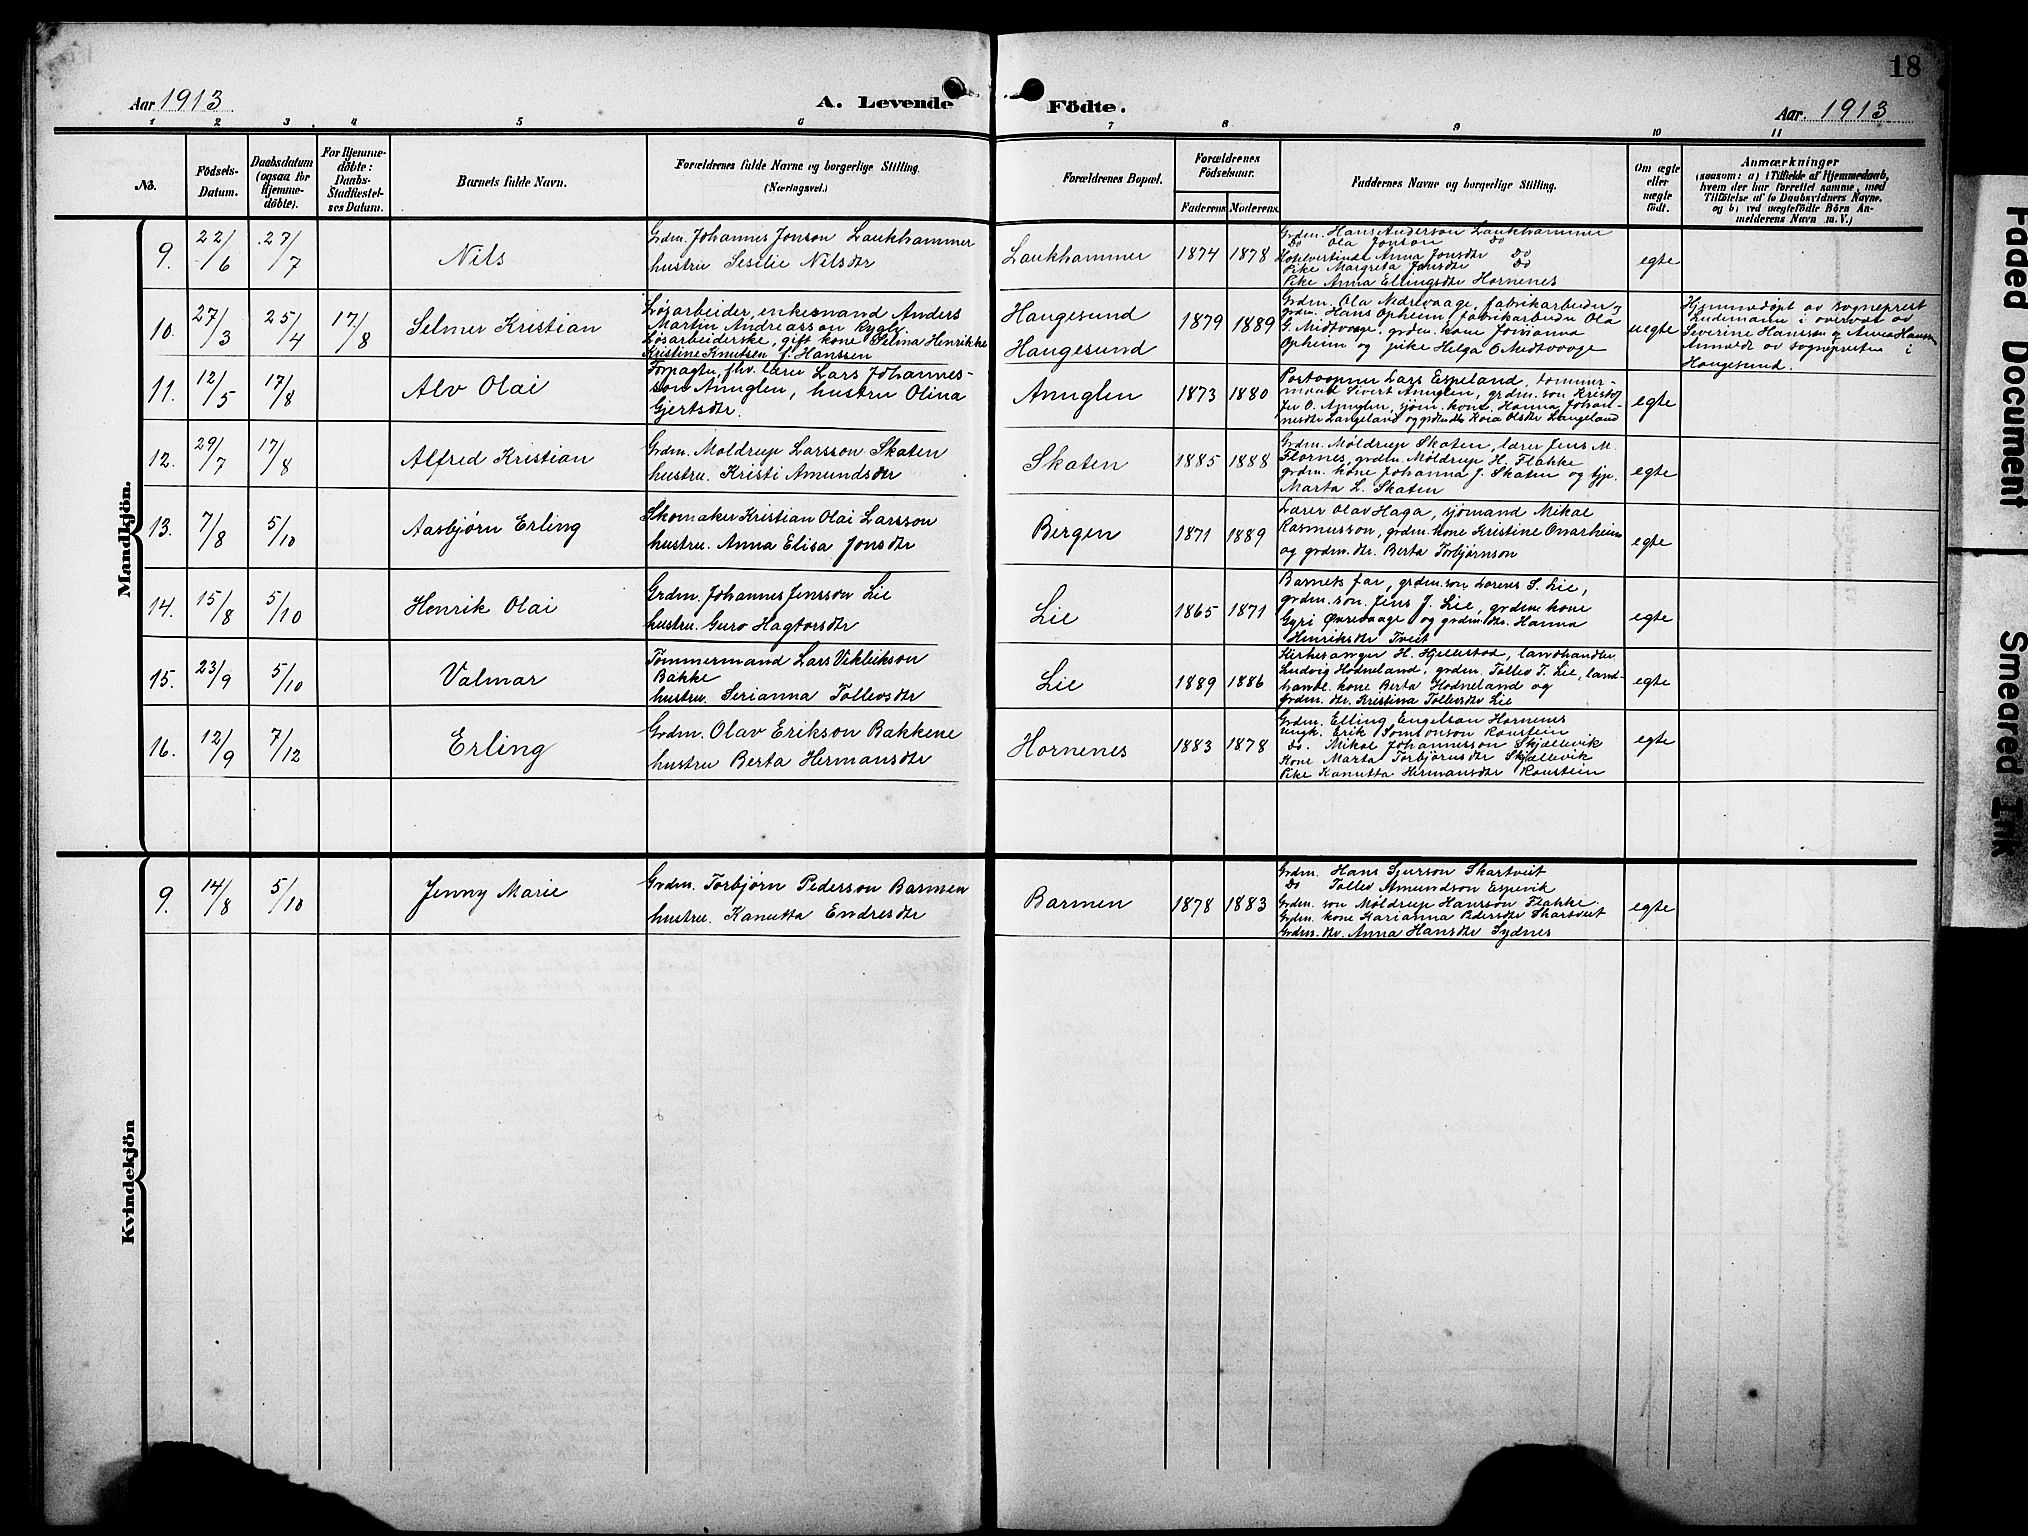 18
Aar 1913
A. Levende Födte.
Aar. 1913
1 2 3 4 5 6 7 8 9 10 11
No.
Födsels-
Datum.
Daabsdatum
(ogsaa for
Hjemme-
döbte).
For Hjemme-
döbte:
Daabs-
Stadfæstel-
ses Datum.
Barnets fulde Navn.
Forældrenes fulde Navne og borgerlige Stilling.
(Næringsvei.)
Forældrenes Bopæl.
Forældrenes
Födselsaar.
Faderens Moderens
Faddernes Navne og borgerlige Stilling.
Om ægte
eller
uægte
født.
Anmærkninger
(saasom: a) i Tilfælde af Hjemmedaab,
hvem der har forrettet samme, med
Tilføielse af to Daabsvidners Navne,
og b) ved uægtefödte Börn An-
melderens Navn m. V.)
Mandkjön.
9. 22/6 27/7 Nils
Grdm. Johannes Jonson Laukhammer
hustru Sesilie Nilsdtr
Laukhammer 1874 1878
Grdm. Hans Anderson Laukhammer
Do Ola Jonson Do
Anna Jonsdtr Do
Pike Margreta Jonsdtr Do
Pike Anna Ellingsdtr Hornenes
egte
10. 27/3 25/4 17/8 Selmer Kristian
Løsarbeider, enkemand Anders
Martin Andreasson Rygh.
Løsarbeiderske, gift kone Selma Henrikke
Kristine Knutsen f. Hanssen
Haugesund
Haugesund
1879 1889
Grdm. Ola Nedrevaage, fabrikarbeider
grdm. Hans Opheim, fabrikarbeider Ola
G. Midtvaage, grdm. kone Johanna
Opheim og pike Helga O Midtvaage
uegte
Hjemmedøpt av sogneprest
Lindemann i overvær av
Severine Hansson og Anna Hansen
Anmeldt av sognepresten i
Haugesund.
11. 12/5 17/8 Alv Olai
Forpagter, fhv. lærer Lars Johannes-
son Anuglen, hustru Olina
Gjertsdtr.
Anuglen 1873 1880
Postaapner Lars Espeland, tømmer-
mand Sivert Anuglen, grdm. søn Kristof-
fer O. Anuglen, sjøm. kone Hanna Johan-
nesdtr Langeland og Kora Olsdtr Langeland
egte
12. 29/7 17/8 Alfred Kristian
Grdm. Moldrup Larsson Skaten
hustru. Kristi Amundsdtr
Skaten 1885 1888
Grdm. Møldrup Skaten, lærer Jens M.
Flornes, grdm. Møldrup H. Flakke
grdm. kone Johanna J. Skaten og tjp.
Marta L. Skaten
egte
13. 7/8 5/10 Aasbjørn Erling
Skomaker Kristian Olai Larsson
hustru. Anna Elisa Jonsdtr
Bergen 1871 1889
Lærer Olav Haga, sjømand Mikal
Rasmusson, grdm. kone Kristine Onarheim
og grdm. dtr. Berta Torbjørnson
egte
14. 15/8 5/10 Henrik Olai
Grdm. Johannes Jensson Lie
hustru. Guro Hagtorsdtr
Lie 1865 1871
Barnets far, grdm. søn Lorens S. Lie,
grdm. søn. Jens J. Lie, grdm. kone
Gyri Øvrevaage og grdm. dtr. Hanna
Henriksdtr Tveit
egte
15. 23/9 5/10 Valmar
Tømmermand Lars Viklikson
Bakke
hustru. Serianna Tollevsdtr
Lie 1889 1886
Kirkesanger H. Hjellestad, landhandler
Ludvig Hodneland, grdm. Tollev T. Lie, land-
handl. kone Berta Hodneland og
grdm. dtr. Kristina Tollevsdtr Lie
egte
16. 12/9 7/12 Erling
Grdm. Olav Erikson Bakkene
hustru Berta Hermansdtr
Hornenes 1883 1878
Grdm. Elling Engelson Hornenes
ungk. Erik Samsonson Raustein
Do. Mikal Johannesson Skjællevik
Kone Marta Torbjørnsdtr Skjællevik
Pike Kanutta Hermansdtr Raustein
egte
Kvindekjön
9. 14/8 5/10 Jenny Marie
Grdm. Torbjørn Pederson Barmen
hustru. Kanutta Endresdtr
Barmen 1878 1883
Grdm. Hans Sjurson Skartveit
Do Tollev Amundson Espevik
Grdm. søn Møldrup Hansson Flakke.
Grdm. kone Karianna Pedersdtr Skartveit
Grdm. dtr. Anna Hansdtr Sydnes
egte
Faded Document
Smeared Ink